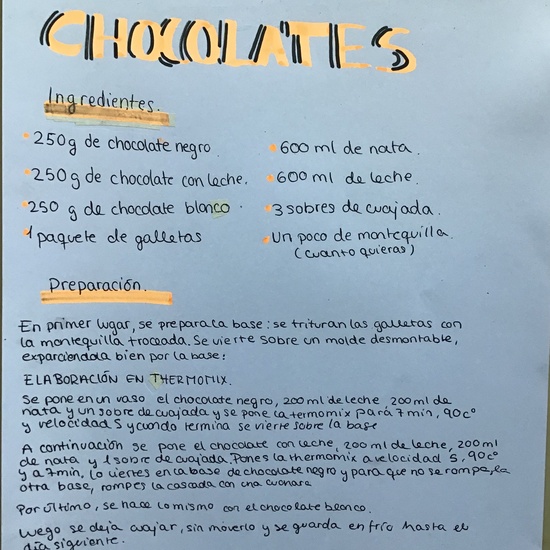 CHOCOLATES
Ingredientes.
250g de chocolate negro
250g de chocolate con leche.
250 g de chocolate blanco.
1 paquete de galletas
600 ml de nata.
600 ml de leche.
3 sobres de cuajada.
Un poco de mantequilla.
(cuanto quieras)
Preparación.
En primer lugar, se prepara la base: se trituran las galletas con
la mantequilla troceada. Se vierte sobre un molde desmontable,
esparciendola bien por la base:
ELABORACIÓN EN THERMOMIX.
Se pone en un vaso el chocolate negro, 200 ml de leche, 200 ml de
nata y un sobre de cuajada y se pone la termomix para 7 min, 90cº
y velocidad 5 y cuando termina se vierte sobre la base
A continuación se pone el chocolate con leche, 200 ml de leche, 200 ml
de nata y 1 sobre de cuajada. Pones la thermomix a velocidad 5, 90cº
y a 7min, lo viertes en la base de chocolate negro y para que no se rompa, la
otra base, rompes la cascada con una cuchara
Por último, se hace lo mismo con el chocolate blanco.
Luego se deja cuajar, sin moverlo y se guarda en frío hasta el
día siguiente.